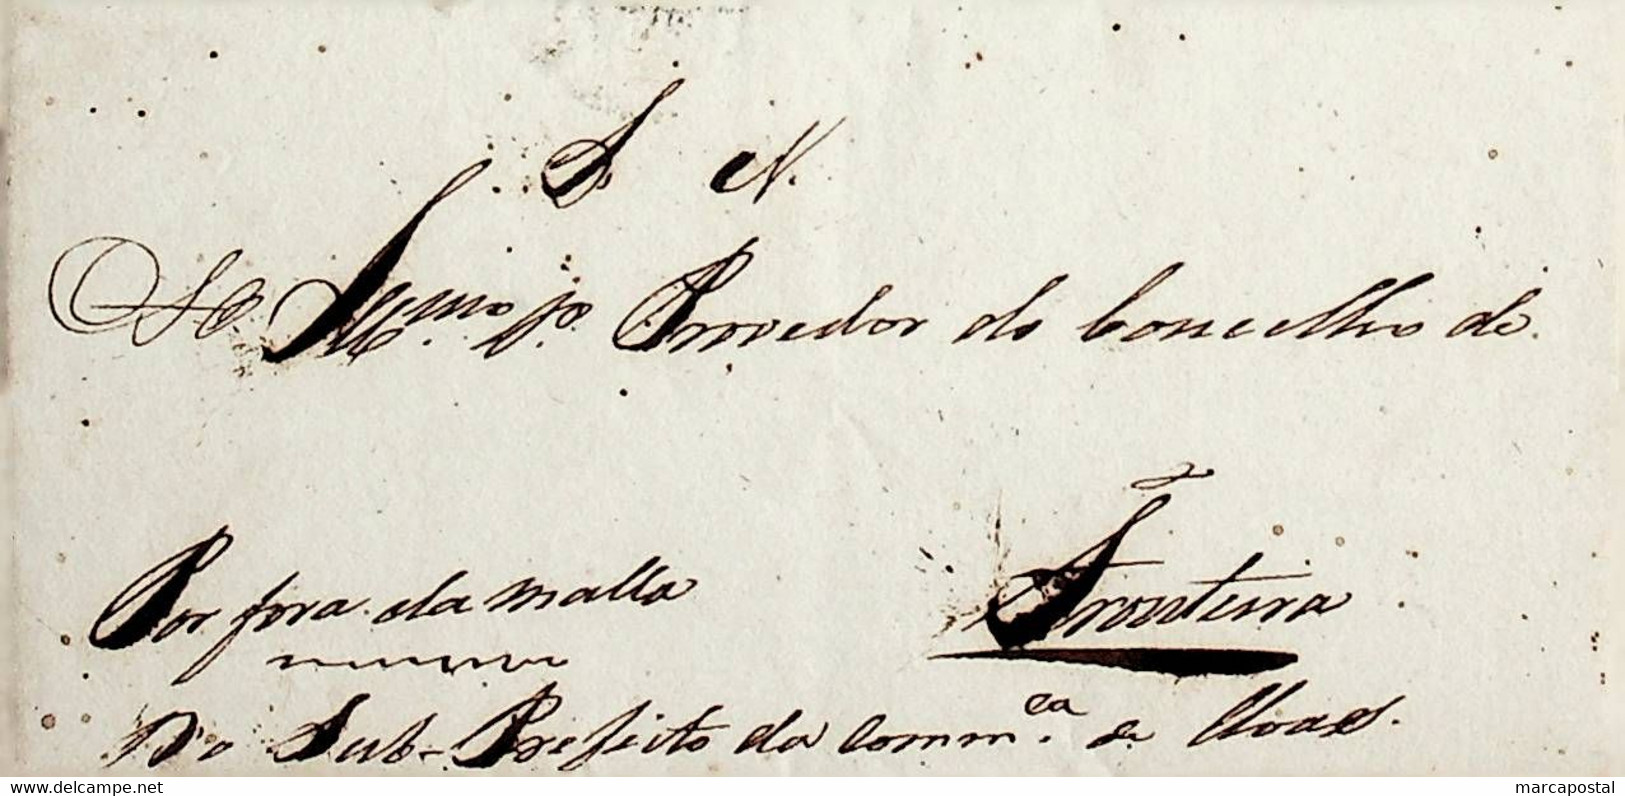 S. N.
Ao Illmo. Sr. Provedor do Concelho de
Fronteira
Por fora da malla
Do Sub-Prefeito da Comm.ca de Elvas.
delcampe.net
marcapostal